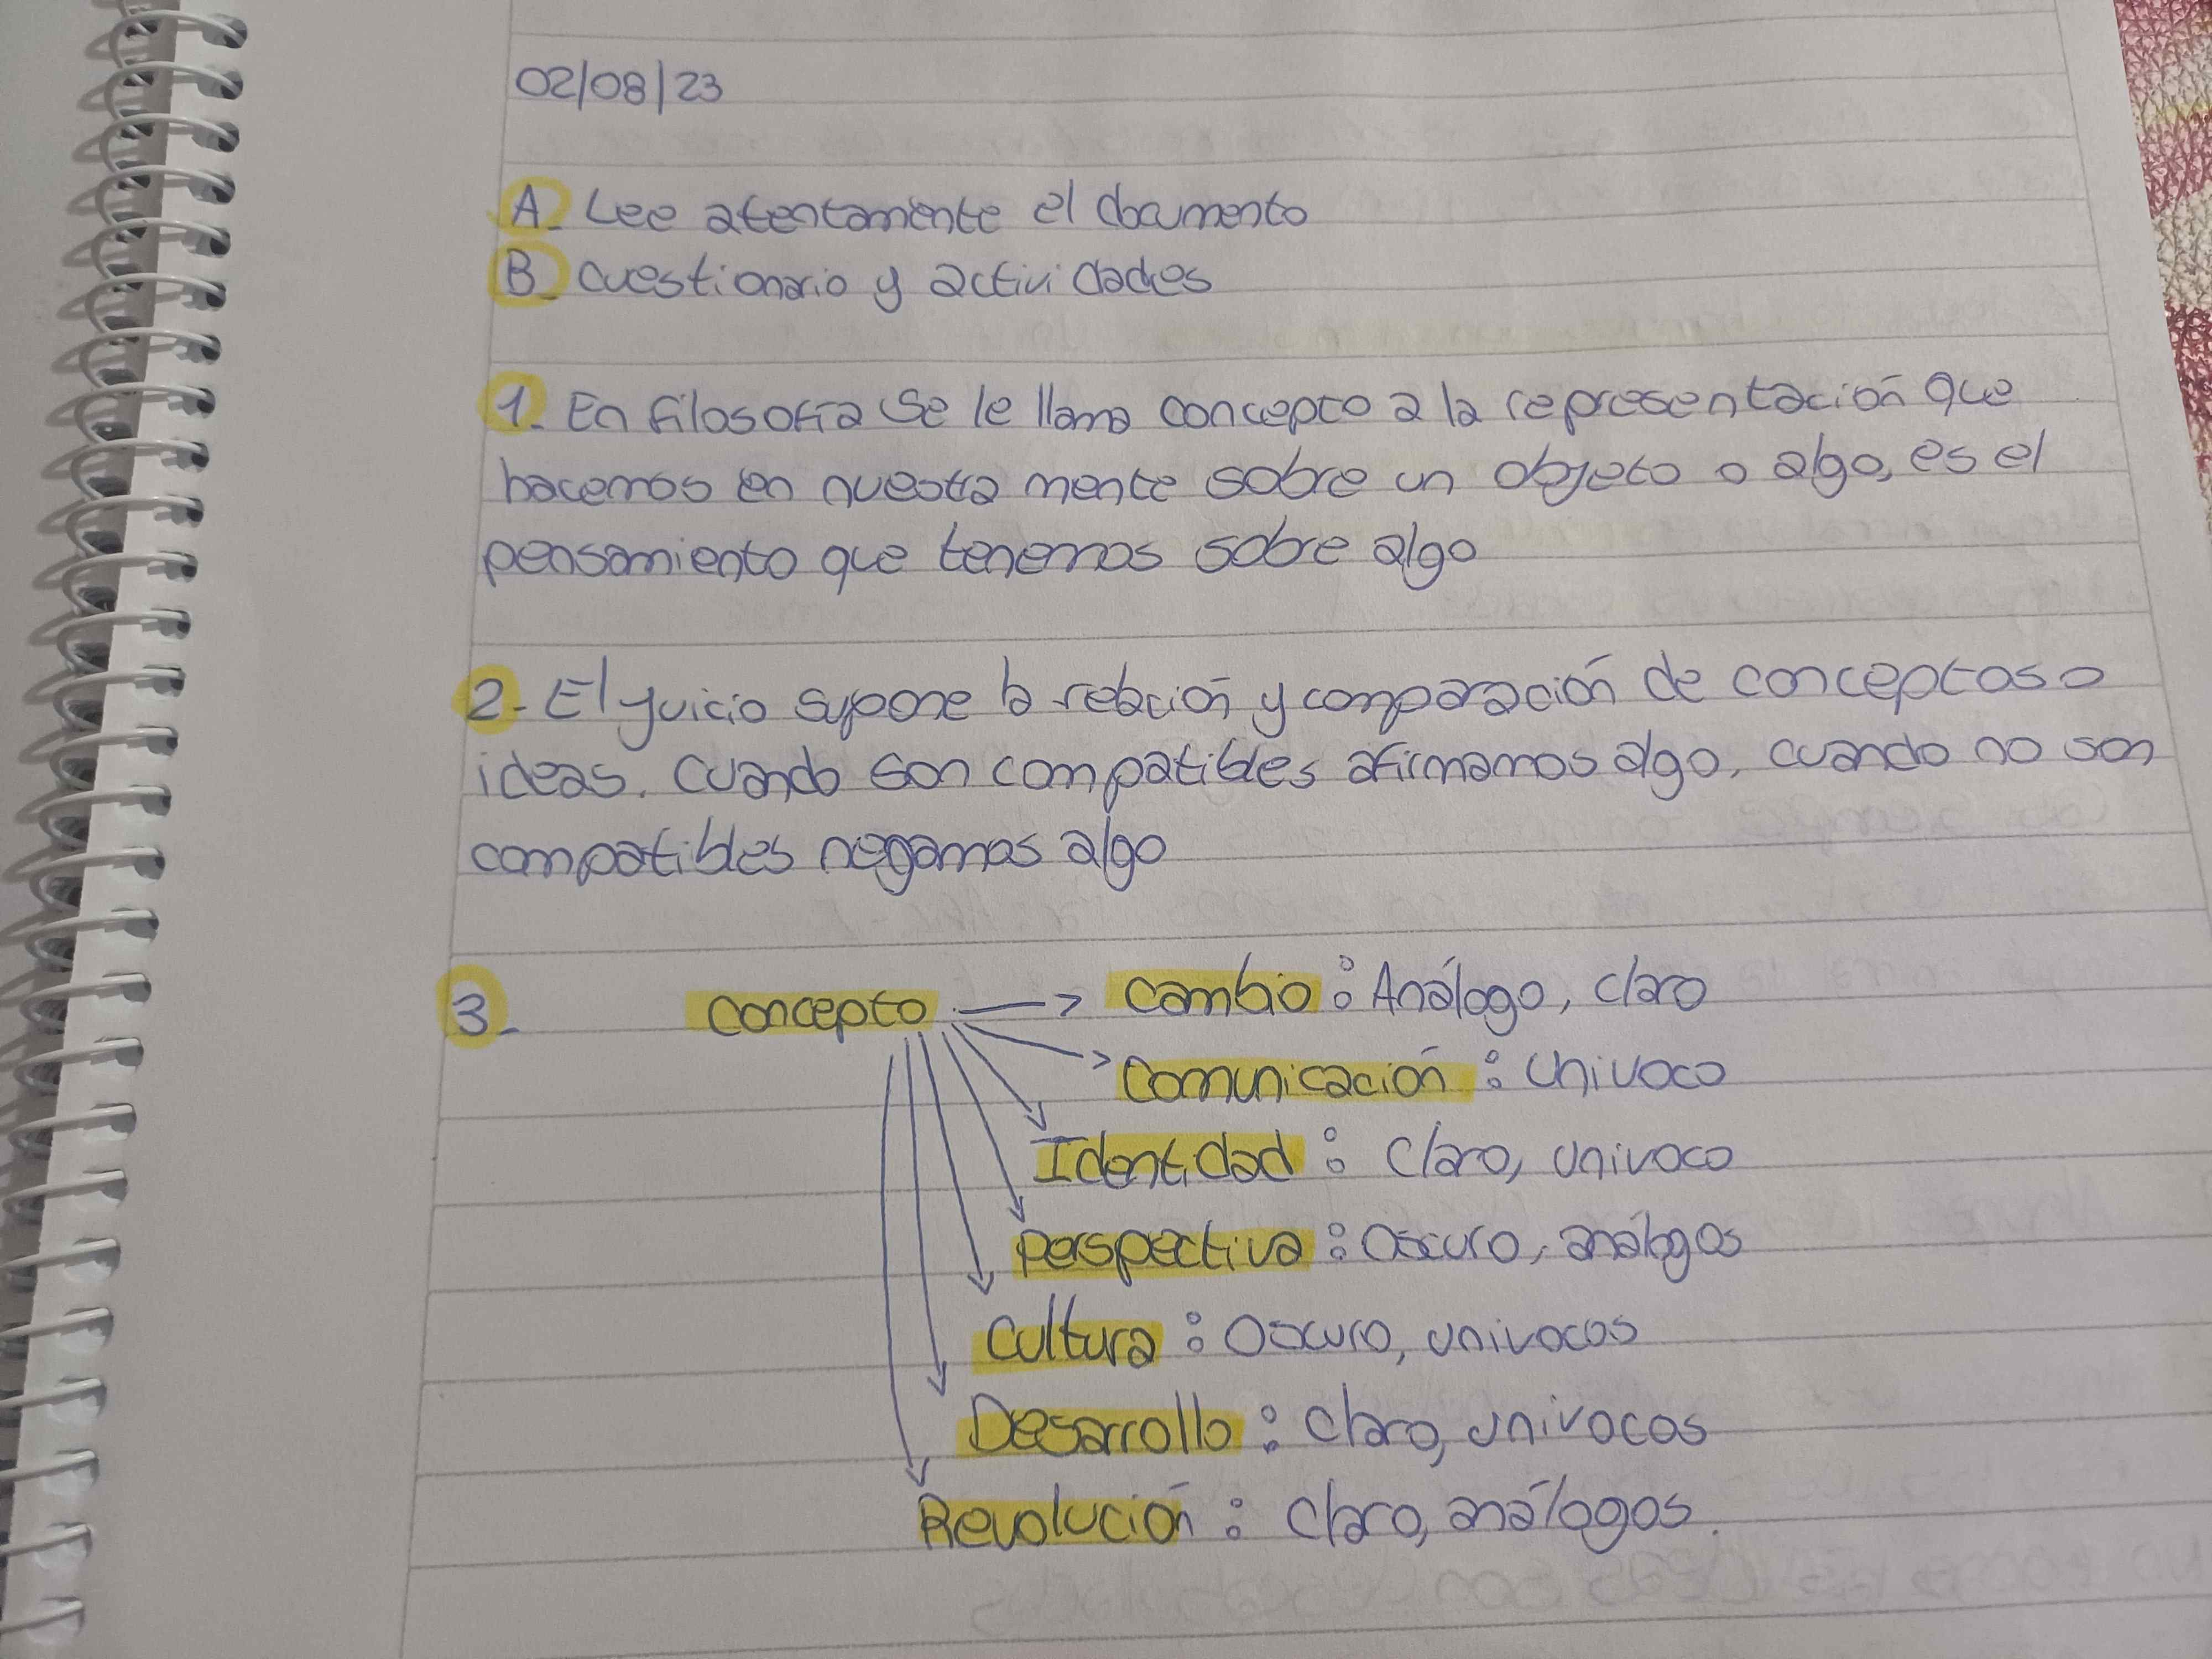 02/08/23
A- Lee atentamente el documento
B- Cuestionario y actividades
1- En filosofía se le llama concepto a la representación que
hacemos en nuestra mente sobre un objeto o algo, es el
pensamiento que tenemos sobre algo
2- El juicio supone la relación y comparación de conceptos o
ideas. Cuando son compatibles afirmamos algo, cuando no son
compatibles negamos algo
3- Concepto → Cambio: Análogo, claro
Comunicación: Univoco
Identidad: Claro, univoco
Perspectiva: Oscuro, análogos
Cultura: Oscuro, univocos
Desarrollo: Claro, univocos
Revolución: Claro, análogos.